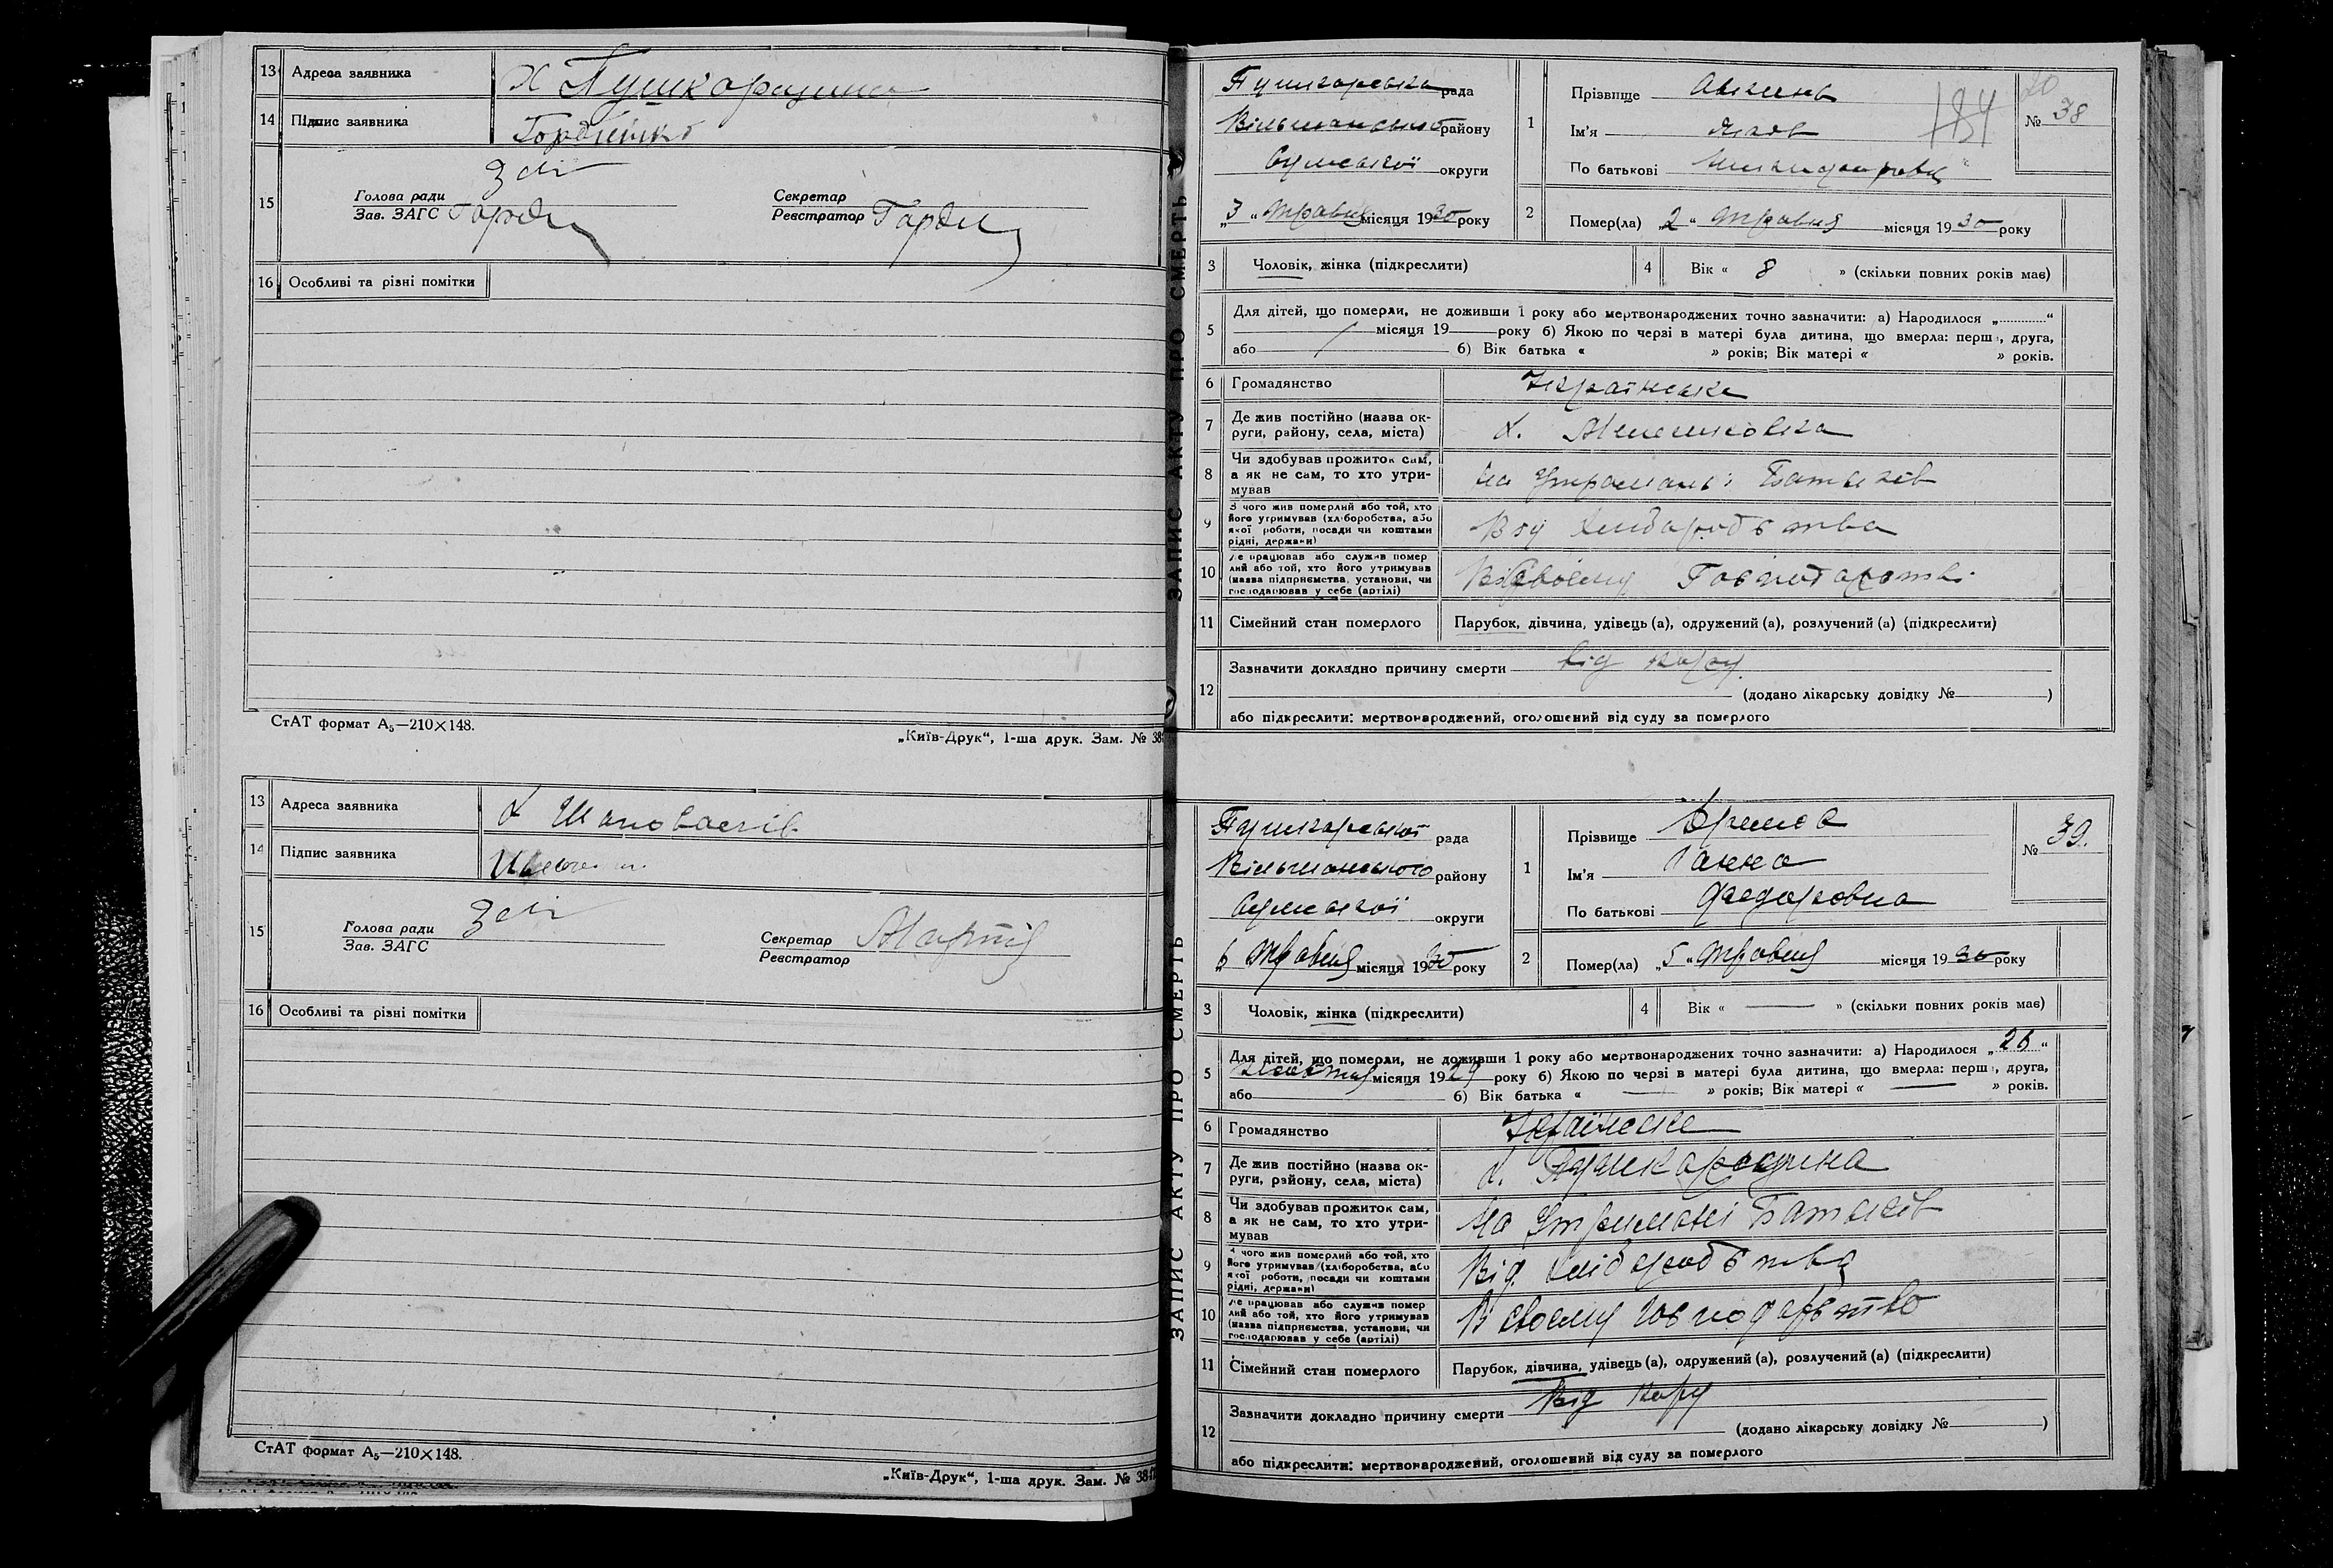 13 Адреса заявника х Пушкарщина
14 Підпис заявника Гордієнко
15 Голова ради Зав. ЗАГС
Секретар Реєстратор
16 Особливі та різні помітки
СтАТ формат А₅—210×148.
„Київ-Друк“, 1-ша друк. Зам. № 38
13 Адреса заявника х Шаповалів
14 Підпис заявника
15 Голова ради Зав. ЗАГС
Секретар Реєстратор
16 Особливі та різні помітки
СтАТ формат А₅—210×148.
„Київ-Друк“, 1-ша друк. Зам. № 38
ЗАПИС АКТУ ПРО СМЕРТЬ
Пушкарська рада
Вільшанського району
Сумської округи
„3“ травня місяця 1930 року
1 Прізвище
Ім'я Яків
По батькові
№ 38
184
20
2 Помер(ла) „2“ травня місяця 1930 року
3 Чоловік, жінка (підкреслити)
4 Вік « 8 » (скільки повних років має)
5 Для дітей, що померли, не доживши 1 року або мертвонароджених точно зазначити: а) Народилося „ “
місяця 19 року б) Якою по черзі в матері була дитина, що вмерла: перша, друга,
або б) Вік батька « » років; Вік матері « » років.
6 Громадянство Українська
7 Де жив постійно (назва округи, району, села, міста) х.
8 Чи здобував прожиток сам, а як не сам, то хто утримував на утримані батьків
9 З чого жив померлий або той, хто його утримував (хліборобства, або якої роботи, посади чи коштами рідні, держави) Від хліборобства
10 Де працював або служив померлий або той, хто його утримував (назва підприємства, установи, чи господарював у себе (артілі) В своєму господарстві
11 Сімейний стан померлого Парубок, дівчина, удівець (а), одружений (а), розлучений (а) (підкреслити)
12 Зазначити докладно причину смерти від кору
(додано лікарську довідку № )
або підкреслити: мертвонароджений, оголошений від суду за померлого
ЗАПИС АКТУ ПРО СМЕРТЬ
Пушкарської рада
Вільшанського району
Сумської округи
„6 травня місяця 1930 року
1 Прізвище Ярема
Ім'я Ганна
По батькові Федоровна
№ 39.
2 Помер(ла) „5“ травня місяця 1930 року
3 Чоловік, жінка (підкреслити)
4 Вік « — » (скільки повних років має)
5 Для дітей, що померли, не доживши 1 року або мертвонароджених точно зазначити: а) Народилося „26“
місяця 1929 року б) Якою по черзі в матері була дитина, що вмерла: перша, друга,
або б) Вік батька « — » років; Вік матері « — » років.
6 Громадянство Українське
7 Де жив постійно (назва округи, району, села, міста) х. Пушкарщина
8 Чи здобував прожиток сам, а як не сам, то хто утримував На утримані батьків
9 З чого жив померлий або той, хто його утримував (хліборобства, або якої роботи, посади чи коштами рідні, держави) Від хліборобства
10 Де працював або служив померлий або той, хто його утримував (назва підприємства, установи, чи господарював у себе (артілі) В своєму господарство
11 Сімейний стан померлого Парубок, дівчина, удівець (а), одружений (а), розлучений (а) (підкреслити)
12 Зазначити докладно причину смерти Від кору
(додано лікарську довідку № )
або підкреслити: мертвонароджений, оголошений від суду за померлого